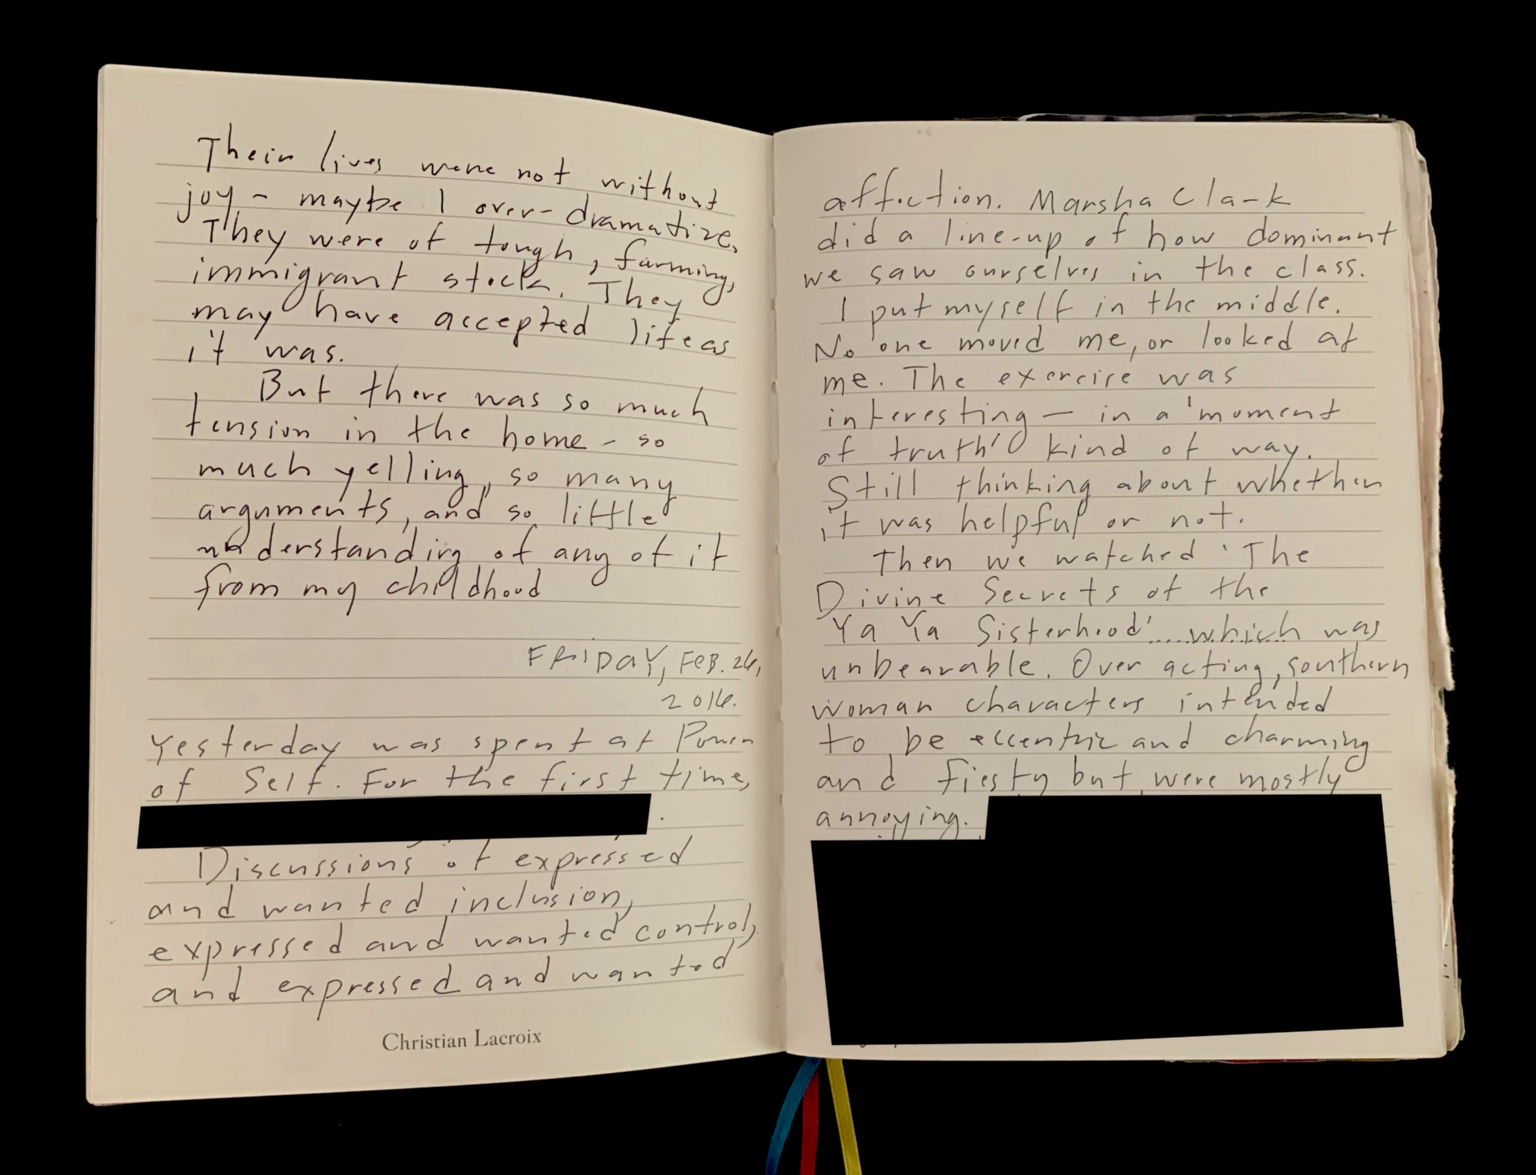 Their lives were not without
joy – maybe I over-dramatize.
They were of tough, farming,
immigrant stock. They
may have accepted life as
it was.
But there was so much
tension in the home – so
much yelling, so many
arguments, and so little
understanding of any of it
from my childhood
FRIDAY, FEB. 26,
2016.
Yesterday was spent at Power
of Self. For the first time,
.
Discussions of expressed
and wanted inclusion,
expressed and wanted control,
and expressed and wanted
Christian Lacroix
affection. Marsha Clark
did a line-up of how dominant
we saw ourselves in the class.
I put myself in the middle.
No one moved me, or looked at
me. The exercise was
interesting — in a 'moment
of truth' kind of way.
Still thinking about whether
it was helpful or not.
Then we watched 'The
Divine Secrets of the
Ya Ya Sisterhood'.....which was
unbearable. Over acting, southern
woman characters intended
to be eccentric and charming
and fiesty but were mostly
annoying.